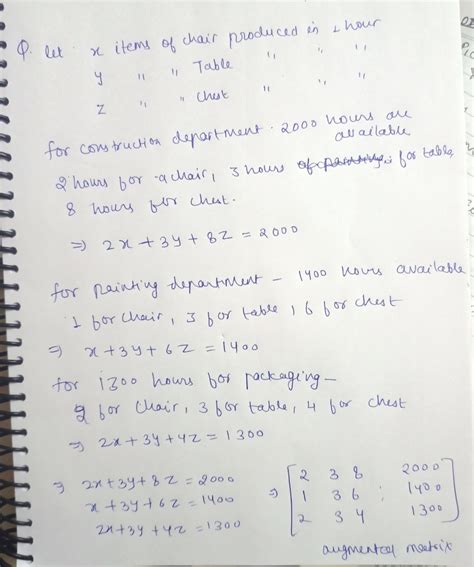 Q. let x items of chair produced in 1 hour
y " " Table " " "
z " " Chest " " "
for construction department. 2000 hours are
available
2 hours for a chair, 3 hours for table,
8 hours for chest.
⇒ 2x + 3y + 8z = 2000
for painting department - 1400 hours available
1 for chair, 3 for table, 6 for chest
⇒ x + 3y + 6z = 1400
for 1300 hours for packaging -
2 for chair, 3 for table, 4 for chest
⇒ 2x + 3y + 4z = 1300
⇒ 2x + 3y + 8z = 2000
x + 3y + 6z = 1400
2x + 3y + 4z = 1300
⇒ [ 2 3 8 2000
1 3 6 ; 1400
2 3 4 1300 ]
augmented matrix